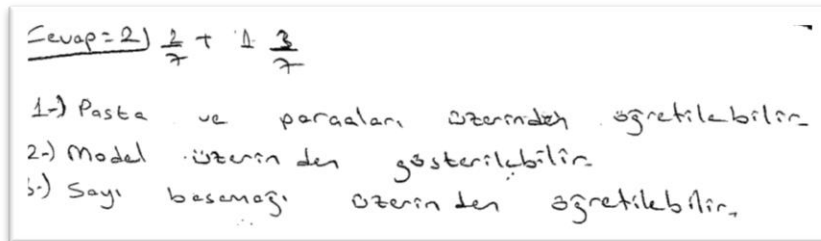 Cevap = 2) 2/7 + 1 3/7
1-) Pasta ve parçaları üzerinden öğretilebilir.
2-) Model üzerinden gösterilebilir.
3-) Sayı basamağı üzerinden öğretilebilir.